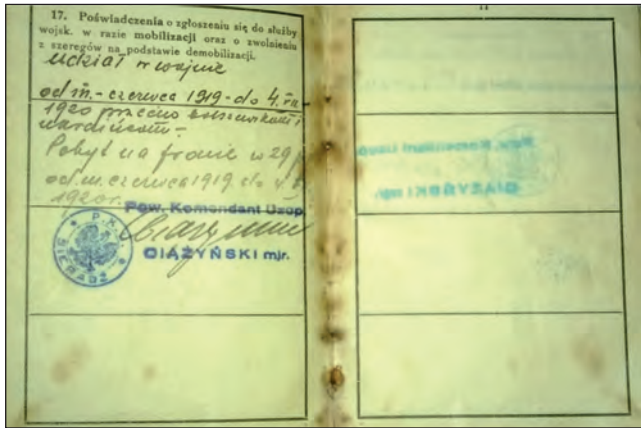 17. Poświadczenia o zgłoszeniu się do służby
wojsk. w razie mobilizacji oraz o zwolnieniu
z szeregów na podstawie demobilizacji.
Udział w wojnie
od m. czerwca 1919 - do 4.
1920 przeciwko bolszewikom i
ukraińcom -
Pobyt na froncie w 29 p.
od m. czerwca 1919 do 4.
1920 r.
Pow. Komendant Uzup.
CIĄŻYŃSKI mjr.
P.K.U.
SIERADZ
11
Pow. Komendant Uzup.
CIĄŻYŃSKI mjr.